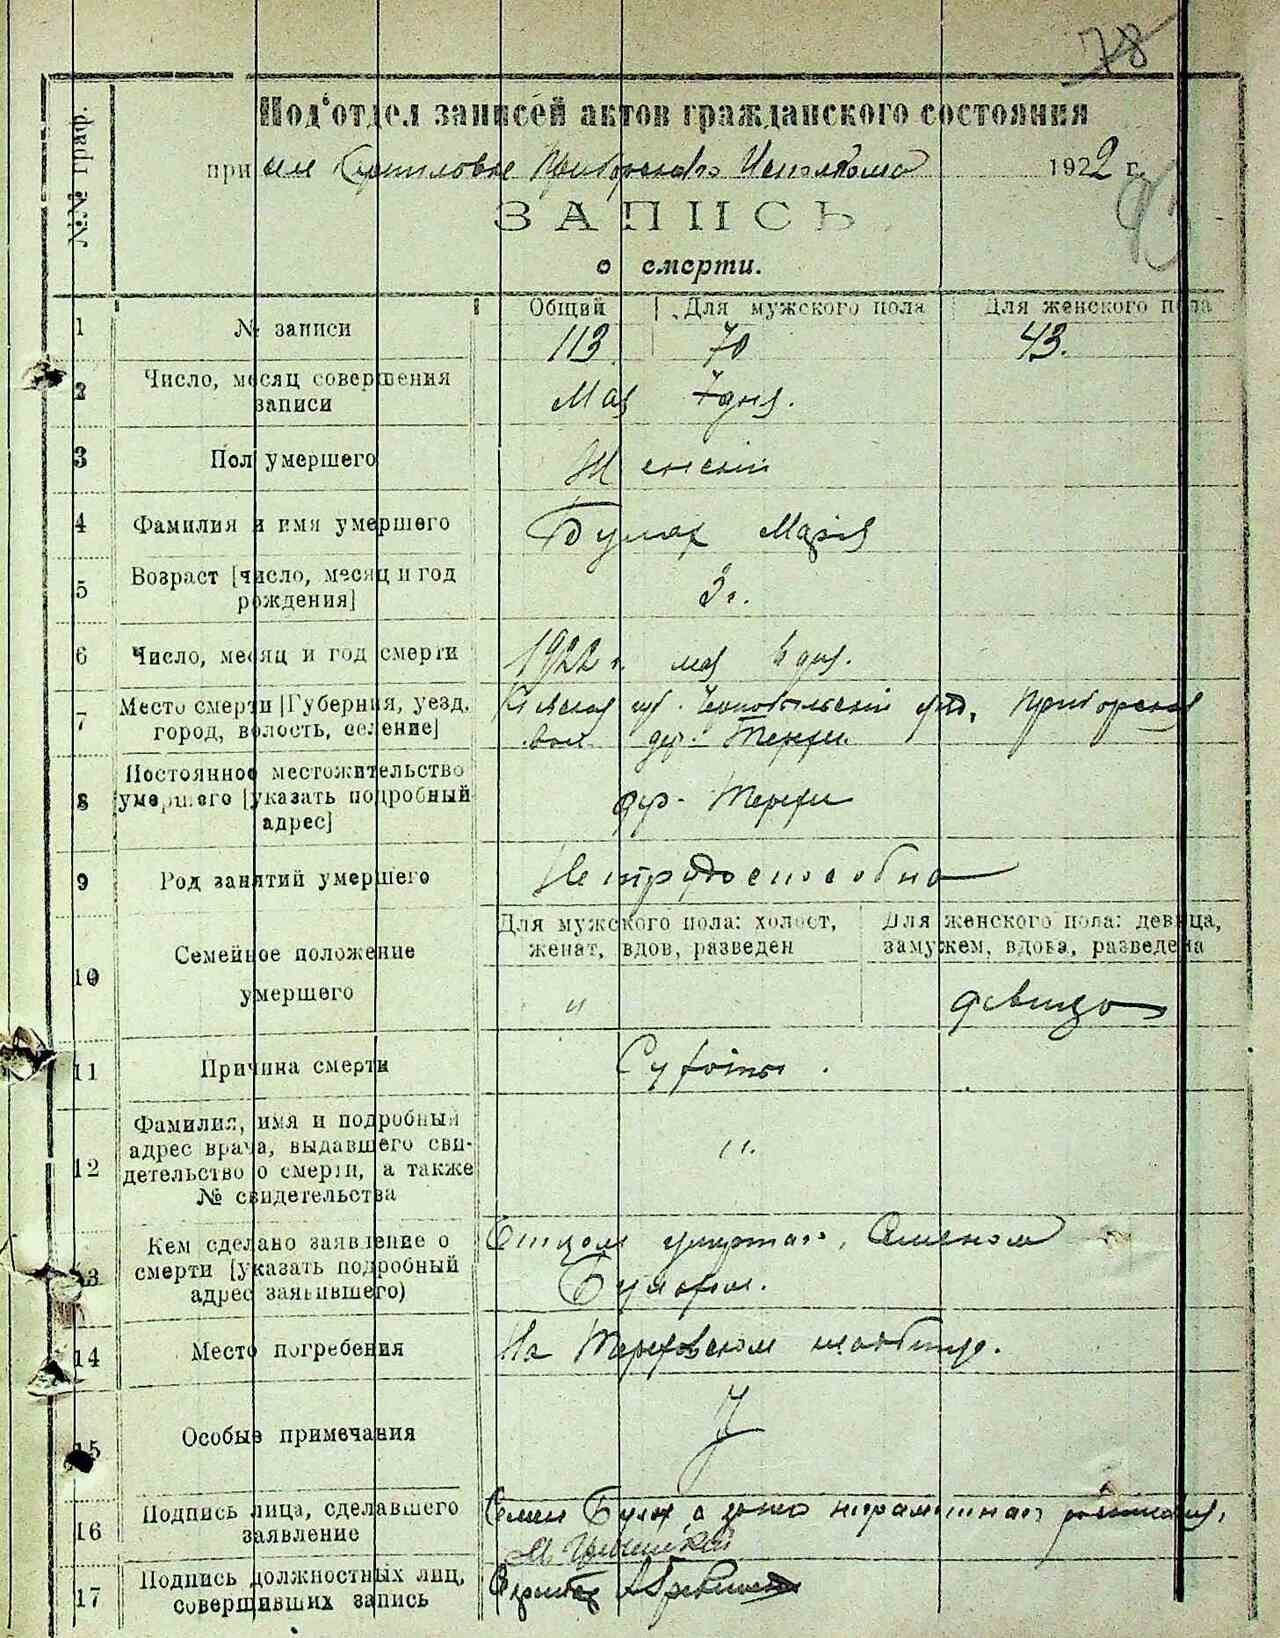 78
Под'отдел записей актов гражданского состояния
при Приборского Исполкома 1922 г.
ЗАПИСЬ
о смерти.
№№ граф.
Общий Для мужского пола Для женского пола
1 № записи 113 70 43.
2 Число, месяц совершения записи Мая 7 дня.
3 Пол умершего Женский
4 Фамилия и имя умершего Булах Марія
5 Возраст [число, месяц и год рождения] 3 г.
6 Число, месяц и год смерти 1922 г. мая дня.
7 Место смерти [Губерния, уезд, город, волость, селение] Киевская губ. Чернобыльский уезд, Приборская вол. дер. Терехи
8 Постоянное местожительство умершего [указать подробный адрес] дер. Терехи
9 Род занятий умершего Нетрудоспособна
10 Семейное положение умершего
Для мужского пола: холост, женат, вдов, разведен
Для женского пола: девица, замужем, вдова, разведена
" девица
11 Причина смерти
12 Фамилия, имя и подробный адрес врача, выдавшего свидетельство о смерти, а также № свидетельства "
13 Кем сделано заявление о смерти [указать подробный адрес заявившего) Отцом Семеном
Булахом.
14 Место погребения На Тереховском кладбище.
15 Особые примечания
16 Подпись лица, сделавшего заявление Семен Булах, а за него неграмотнаго
17 Подпись должностных лиц, совершивших запись